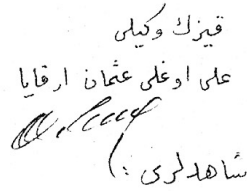 قيزك وكيلى
على اوغلى عثمان ارقايا
شاهدلرى :)